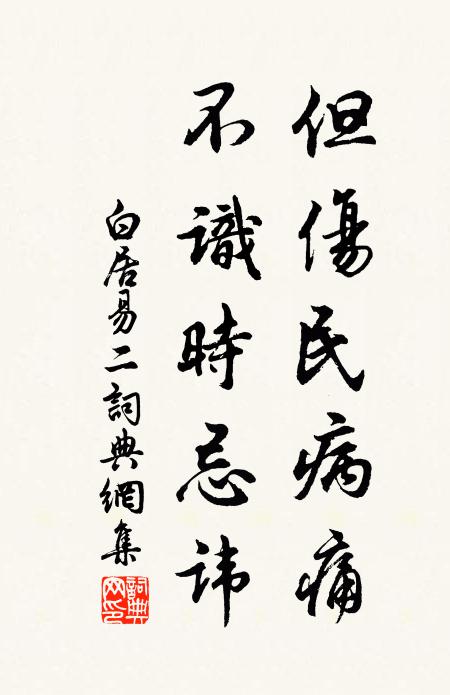 但傷民病痛
不識時忌諱
白居易二詞典網集
詞典
网印